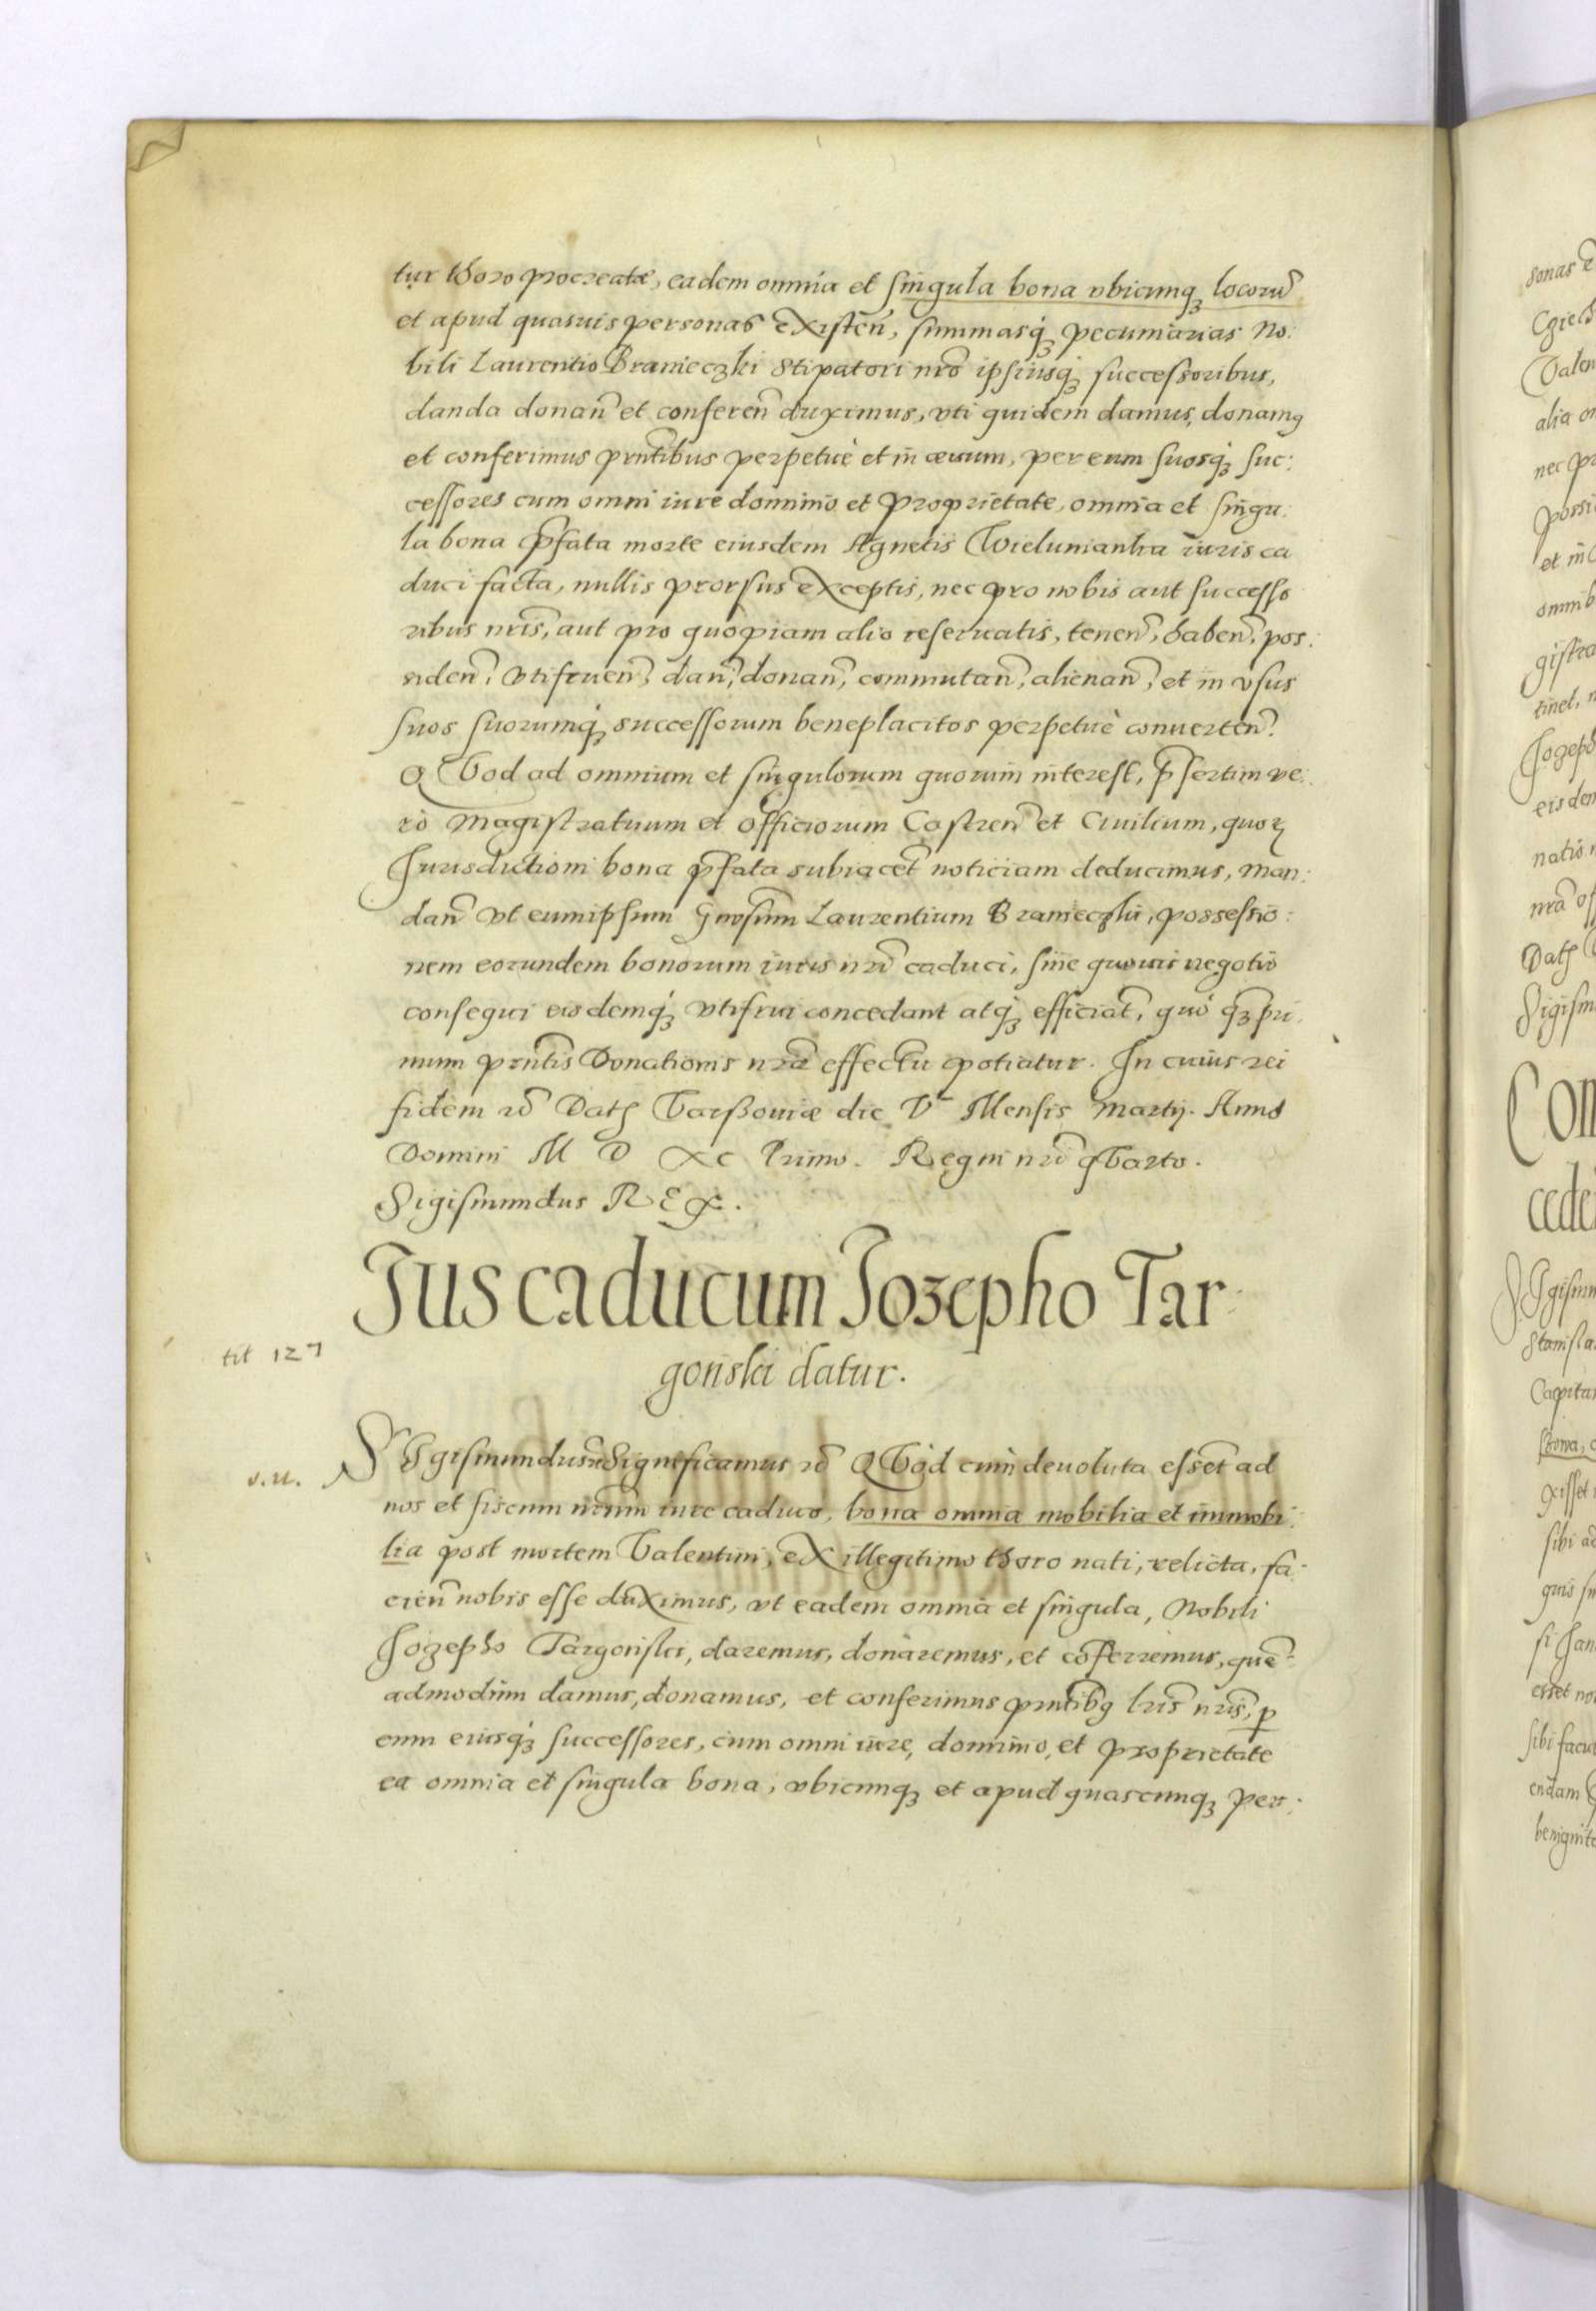 tur thoro procreatæ, eadem omnia et singula bona vbicunqꝫ locorũ
et apud quasuis personas existeñ, summasqꝫ pecuniarias No:
bili Laurentio Branieczki Stipatori nr̃o ipsiusqꝫ successoribus,
danda donañ et confereñ duximus, vti quidem damus, donamꝰ
et conferimus pr̃ntibus perpetuè et in æuum, per eum suosqꝫ suc:
cessores cum omni iure dominio et proprietate, omnia et singu:
la bona p̃fata morte eiusdem Agnetis Wielunianka iuris ca
duci facta, nullis prorsus exceptis, nec pro nobis aut successo
ribus nr̃is, aut pro quopiam alio reseruatis, teneñ, habeñ, pos:
sideñ, vtifrueñ, dañ, donañ, commutañ, alienañ, et in vsus
suos suorumqꝫ successorum beneplacitos perpetuè conuerteñ.
QVod ad omnium et singulorum quorum interest, p̃sertim ve:
rò Magistratuum et officiorum Castreñ et Ciuilium, quoꝝ
Jurisdictioni bona p̃fata subiacet̃ noticiam deducimus, man:
dañ vt eumipsum Gñosum Laurentium Branieczki, possessio:
nem eorundem bonorum iuris nr̃i caduci, sine quouis negotio
consequi eisdemqꝫ vtifrui concedant atqꝫ efficiãt, quò qꝫ pri:
mum pr̃ntis Donationis nr̃æ effectu potiatur. In cuius rei
fidem ꝛc̃ Datꝭ Varßouiæ die V Mensis Martij. Anno
Domini M D XC Primo. Regni nr̃i qVarto.
Sigismundus REX.
Jus caducum Jozepho Tar:
gonski datur.
tit 127
SIgismundus ꝛc̃ Significamus ꝛc̃ QVòd cùm deuoluta essẽt ad
v. u.
nos et fiscum nr̃um iure caduco, bona omnia mobilia et immobi:
lia post mortem Valentini, ex illegitimo thoro nati, relicta, fa:
cieñ nobis esse duximus, vt eadem omnia et singula, Nobili
Jozepho Targonski, daremus, donaremus, et cõferremus, quẽ:
admodum damus, donamus, et conferimus pr̃ntibꝰ lr̃is nr̃is, ꝑ
eum eiusqꝫ successores, cum omni iure, dominio, et proprietate
ea omnia et singula bona, vbicunqꝫ et apud quascunqꝫ per: